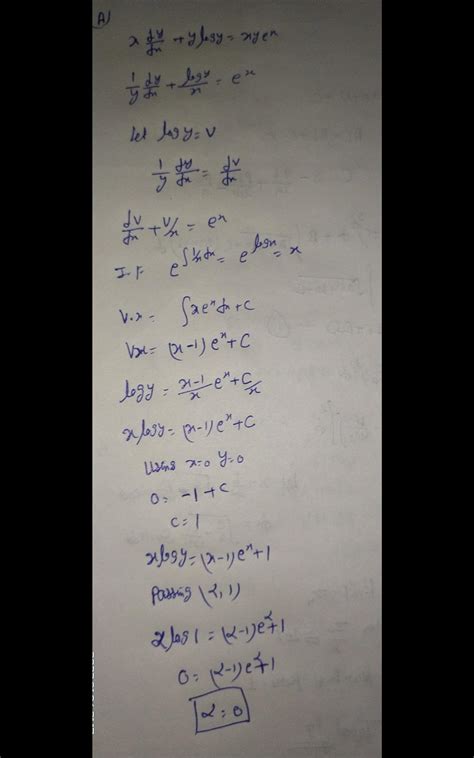 A)
x dy/dx + y logy = xye^x
1/y dy/dx + logy/x = e^x
Let logy = v
1/y dy/dx = dv/dx
dv/dx + v/x = e^x
I.F. e^∫1/x dx = e^logx = x
V.x = ∫xe^x dx + C
Vx = (x-1)e^x + C
logy = x-1/x e^x + C/x
x logy = (x-1)e^x + C
Using x=0 y=0
0 = -1 + c
c = 1
x logy = (x-1)e^x + 1
Passing (α, 1)
α log1 = (α-1)e^α + 1
0 = (α-1)e^α + 1
α = 0